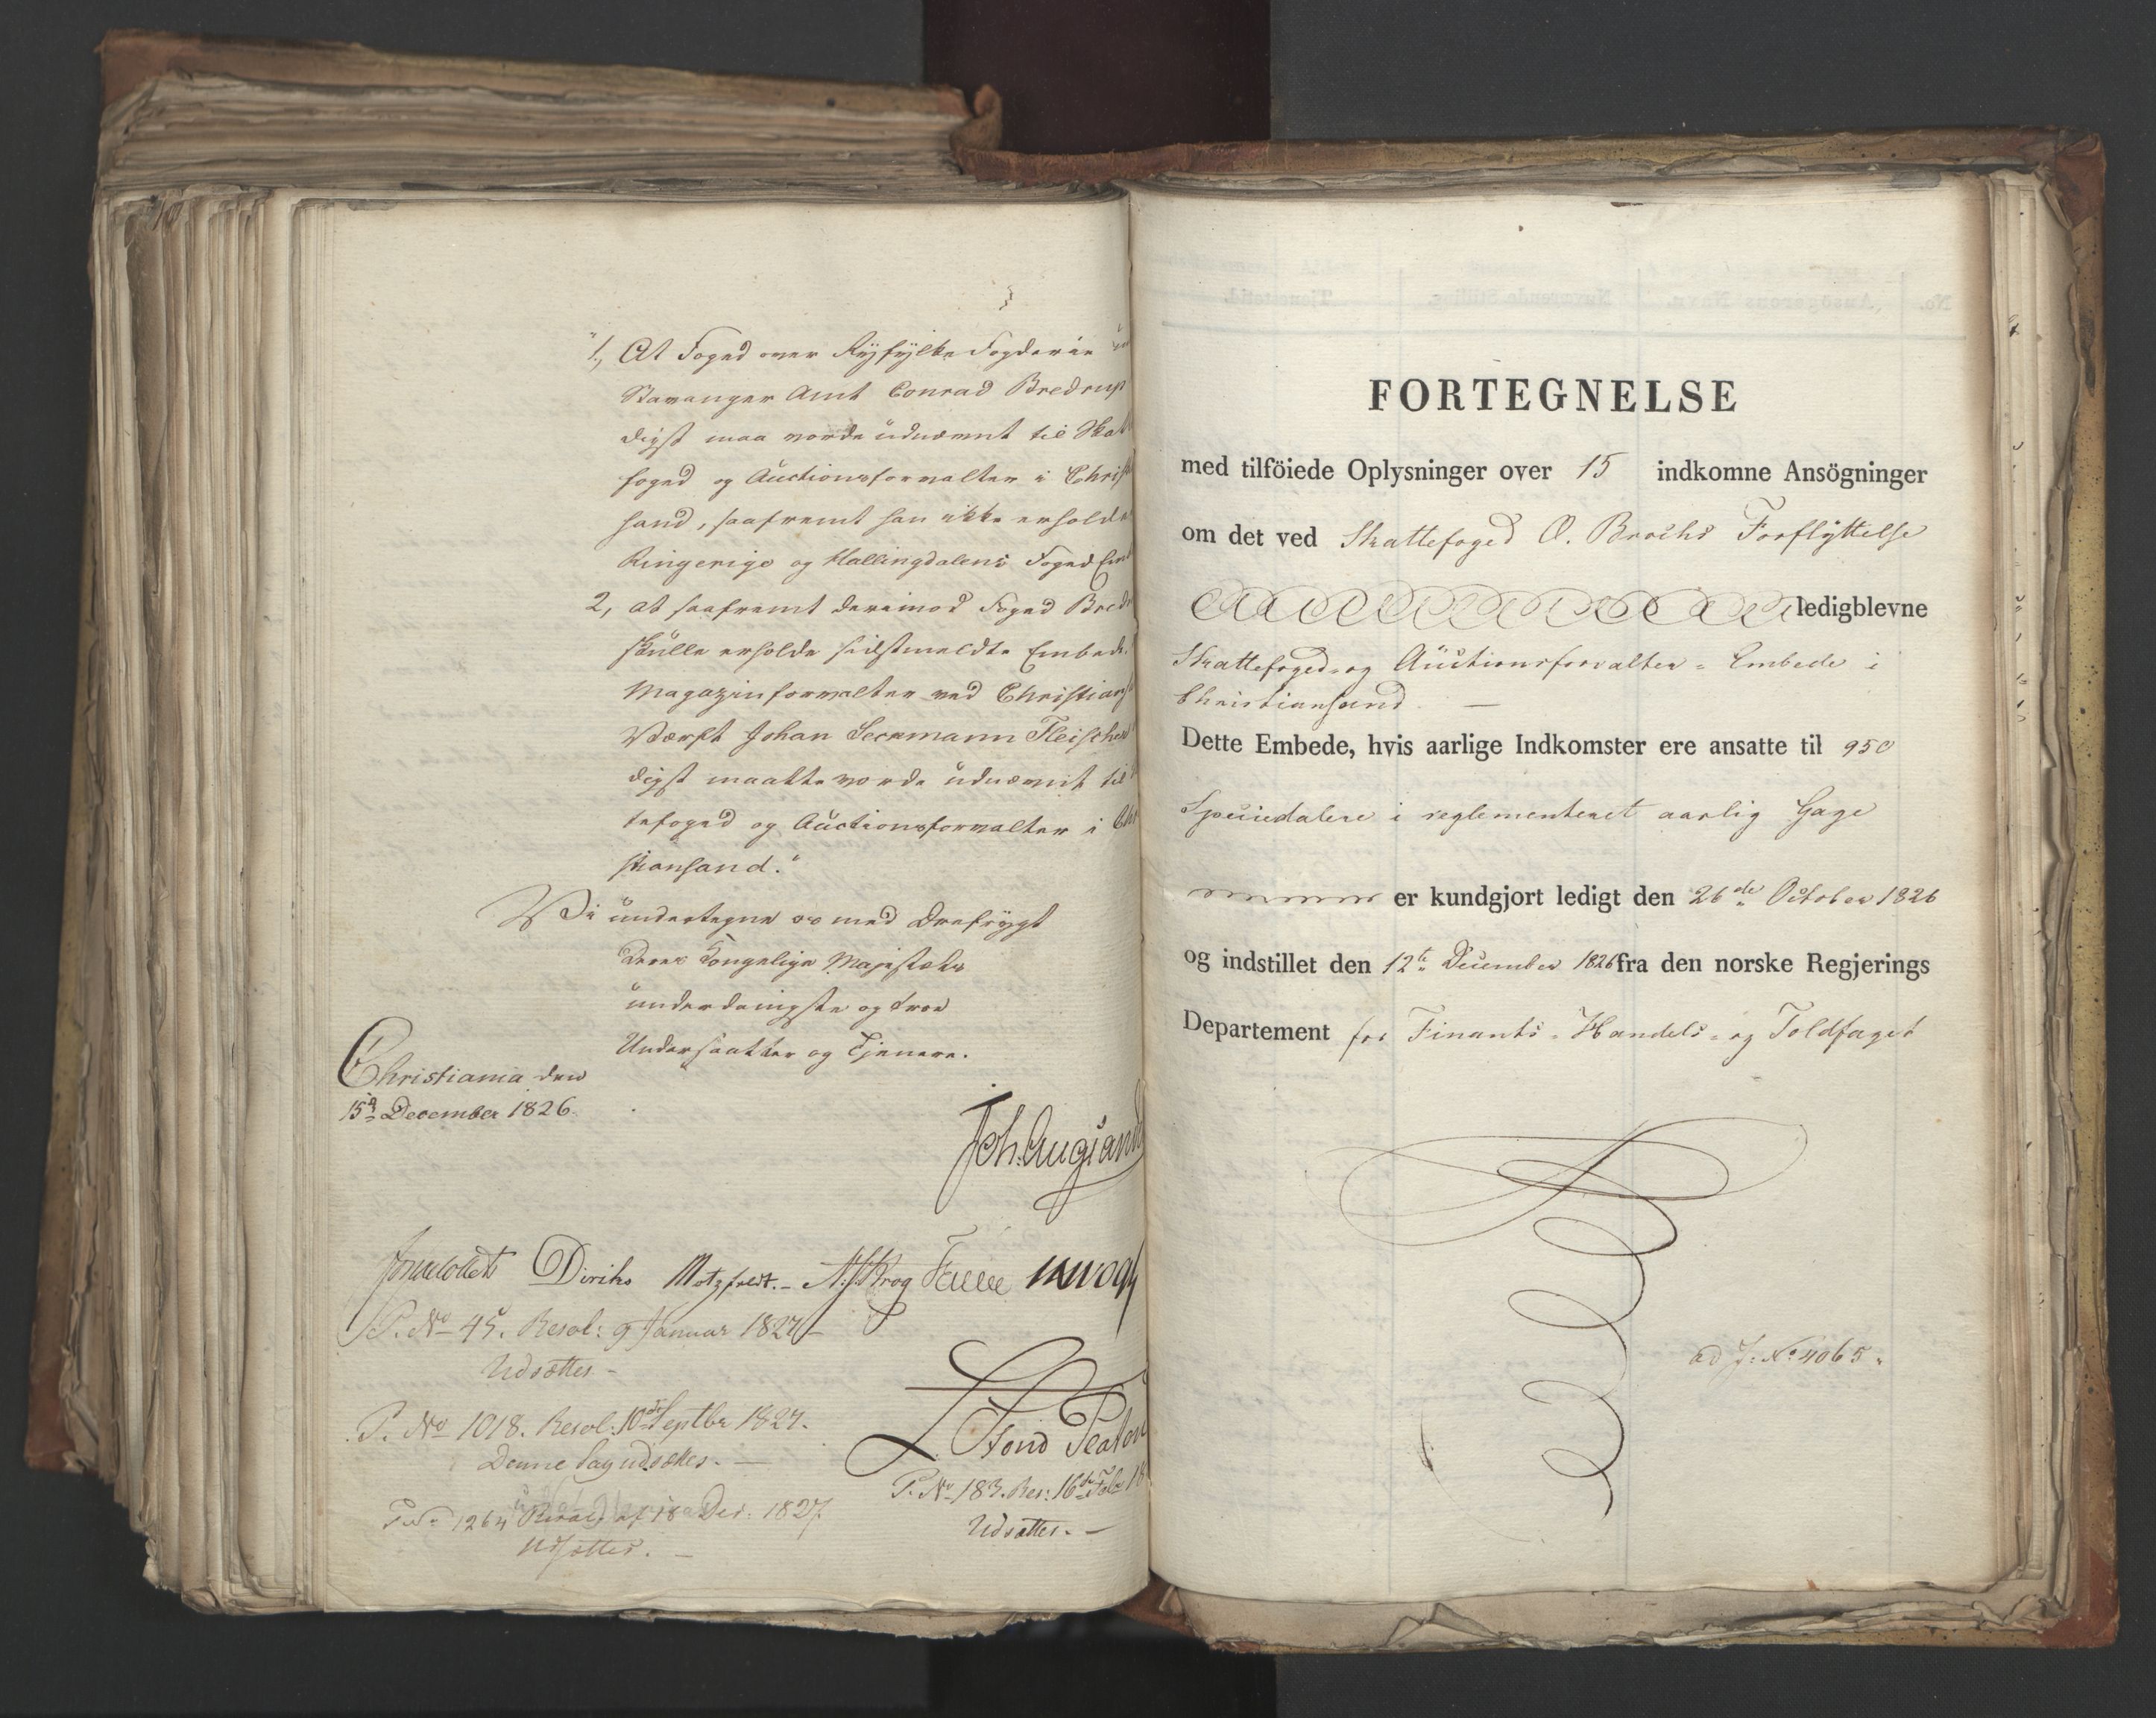 "1, At Foged over Ryfylke Fogderie
Stavanger Amt Conrad Bredrup
digst maa vorde udnævnt til Skat
foged og Auctionsforvalter i Christ
sand, saafremt han ikke erholder
Ringerige og Hallingdalens Foged Em
2, at saafremt derimod Foged Bred
skulle erholde sidstmeldte Embede
Magazinforvalter ved Christians
Værft Johan Seckmann Fleischer
digst maatte vorde udnævnt til
tefoged og Auctionsforvalter i Chri
stiansand."
Vi undertegne os med Dref​rygt
Deres Kongelige Majestæts
underdanigste og troe
Undersaatter og Tjenere.
Christiania den
15de December 1826.
Joh. Aug. Sand
J Collett Diriks Motzfeldt. - Krog Fasting
P. No 45. Resol: 9 Januar 1827
Udsættes -
P. No 1018. Resol: 10de Septbr 1827.
Denne Sag udsættes. -
P. No 1264 Resol. af 18 Dec: 1827
Udsættes. -
P. No 183. Res: 16de Febr 18
Udsættes. -
FORTEGNELSE
med tilföiede Oplysninger over 15 indkomne Ansögninger
om det ved Skattefoged O. Brochs Forflyttelse
ledigblevne
Skattefoged- og Auctionsforvalter-Embede i
Christiansand. -
Dette Embede, hvis aarlige Indkomster ere ansatte til 950
Speciedalere i reglementeret aarlig Gage
er kundgjort ledigt den 26de October 1826
og indstillet den 12te December 1826 fra den norske Regjerings
Departement for Finants- Handels- og Toldfaget
ad J: No 4065.